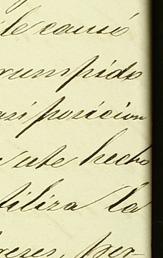 le causó
rumpido
posicion
este hecho
tiliza la
reses, per-